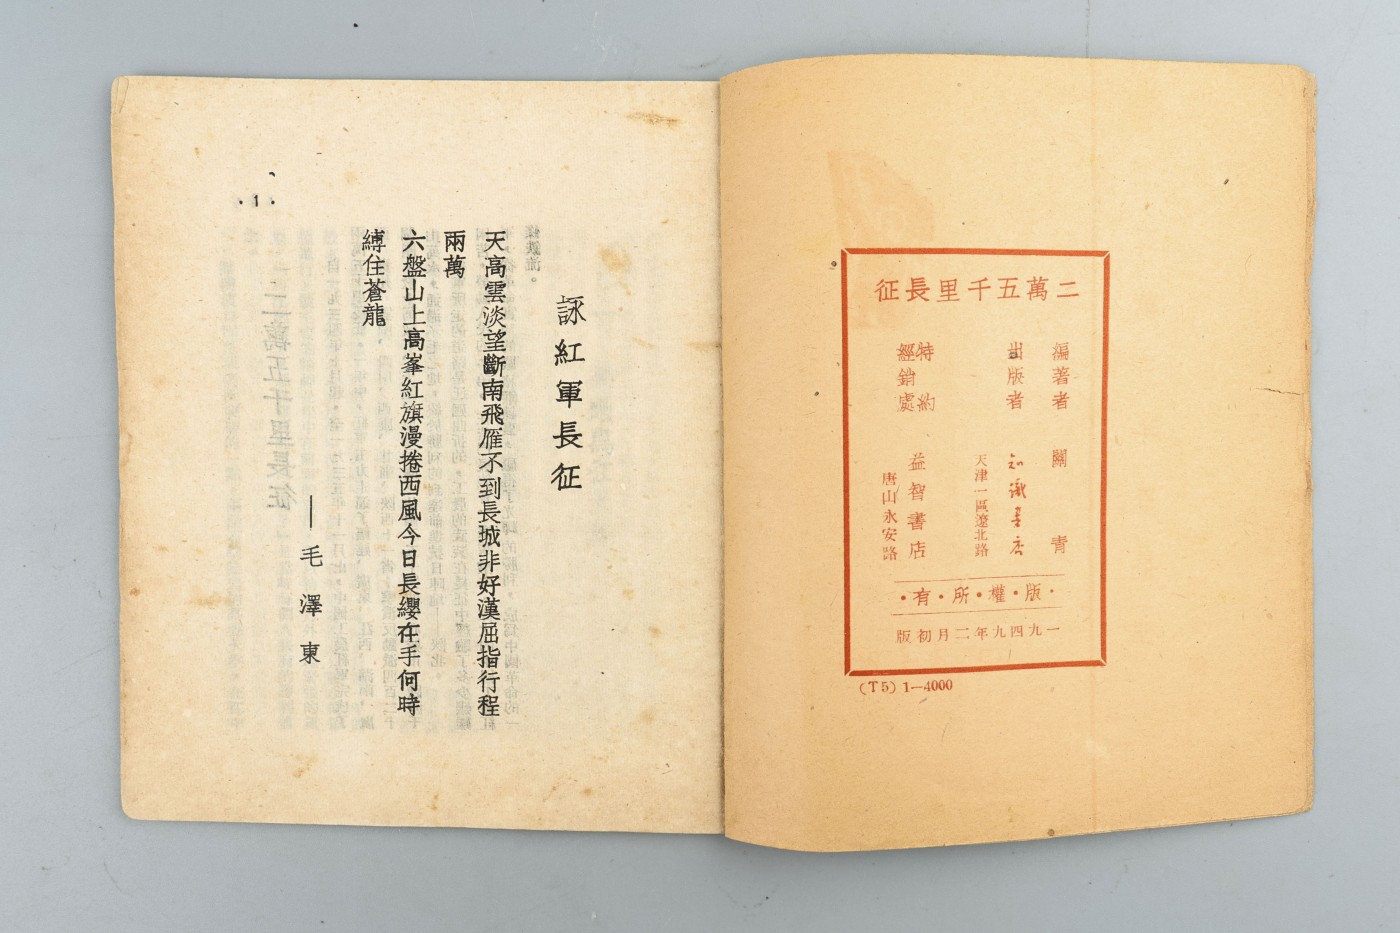 二萬五千里長征
編著者 關青
出版者 知識書店
天津一區遼北路
特約
經銷處 益智書店
唐山永安路
·版·權·所·有·
一九四九年二月初版
(T5) 1—4000
詠紅軍長征
天高雲淡望斷南飛雁不到長城非好漢屈指行程
兩萬
六盤山上高峯紅旗漫捲西風今日長纓在手何時
縛住蒼龍
——毛澤東
·1·